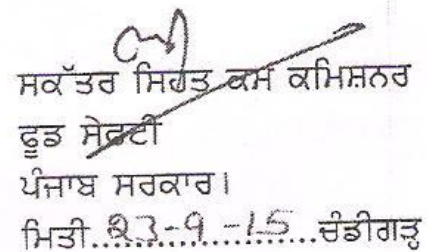 ਸਕੱਤਰ ਸਿਹਤ ਕਮ ਕਮਿਸ਼ਨਰ
ਫੂਡ ਸੇਫਟੀ
ਪੰਜਾਬ ਸਰਕਾਰ।
ਮਿਤੀ..23-9-15..ਚੰਡੀਗੜ੍ਹ